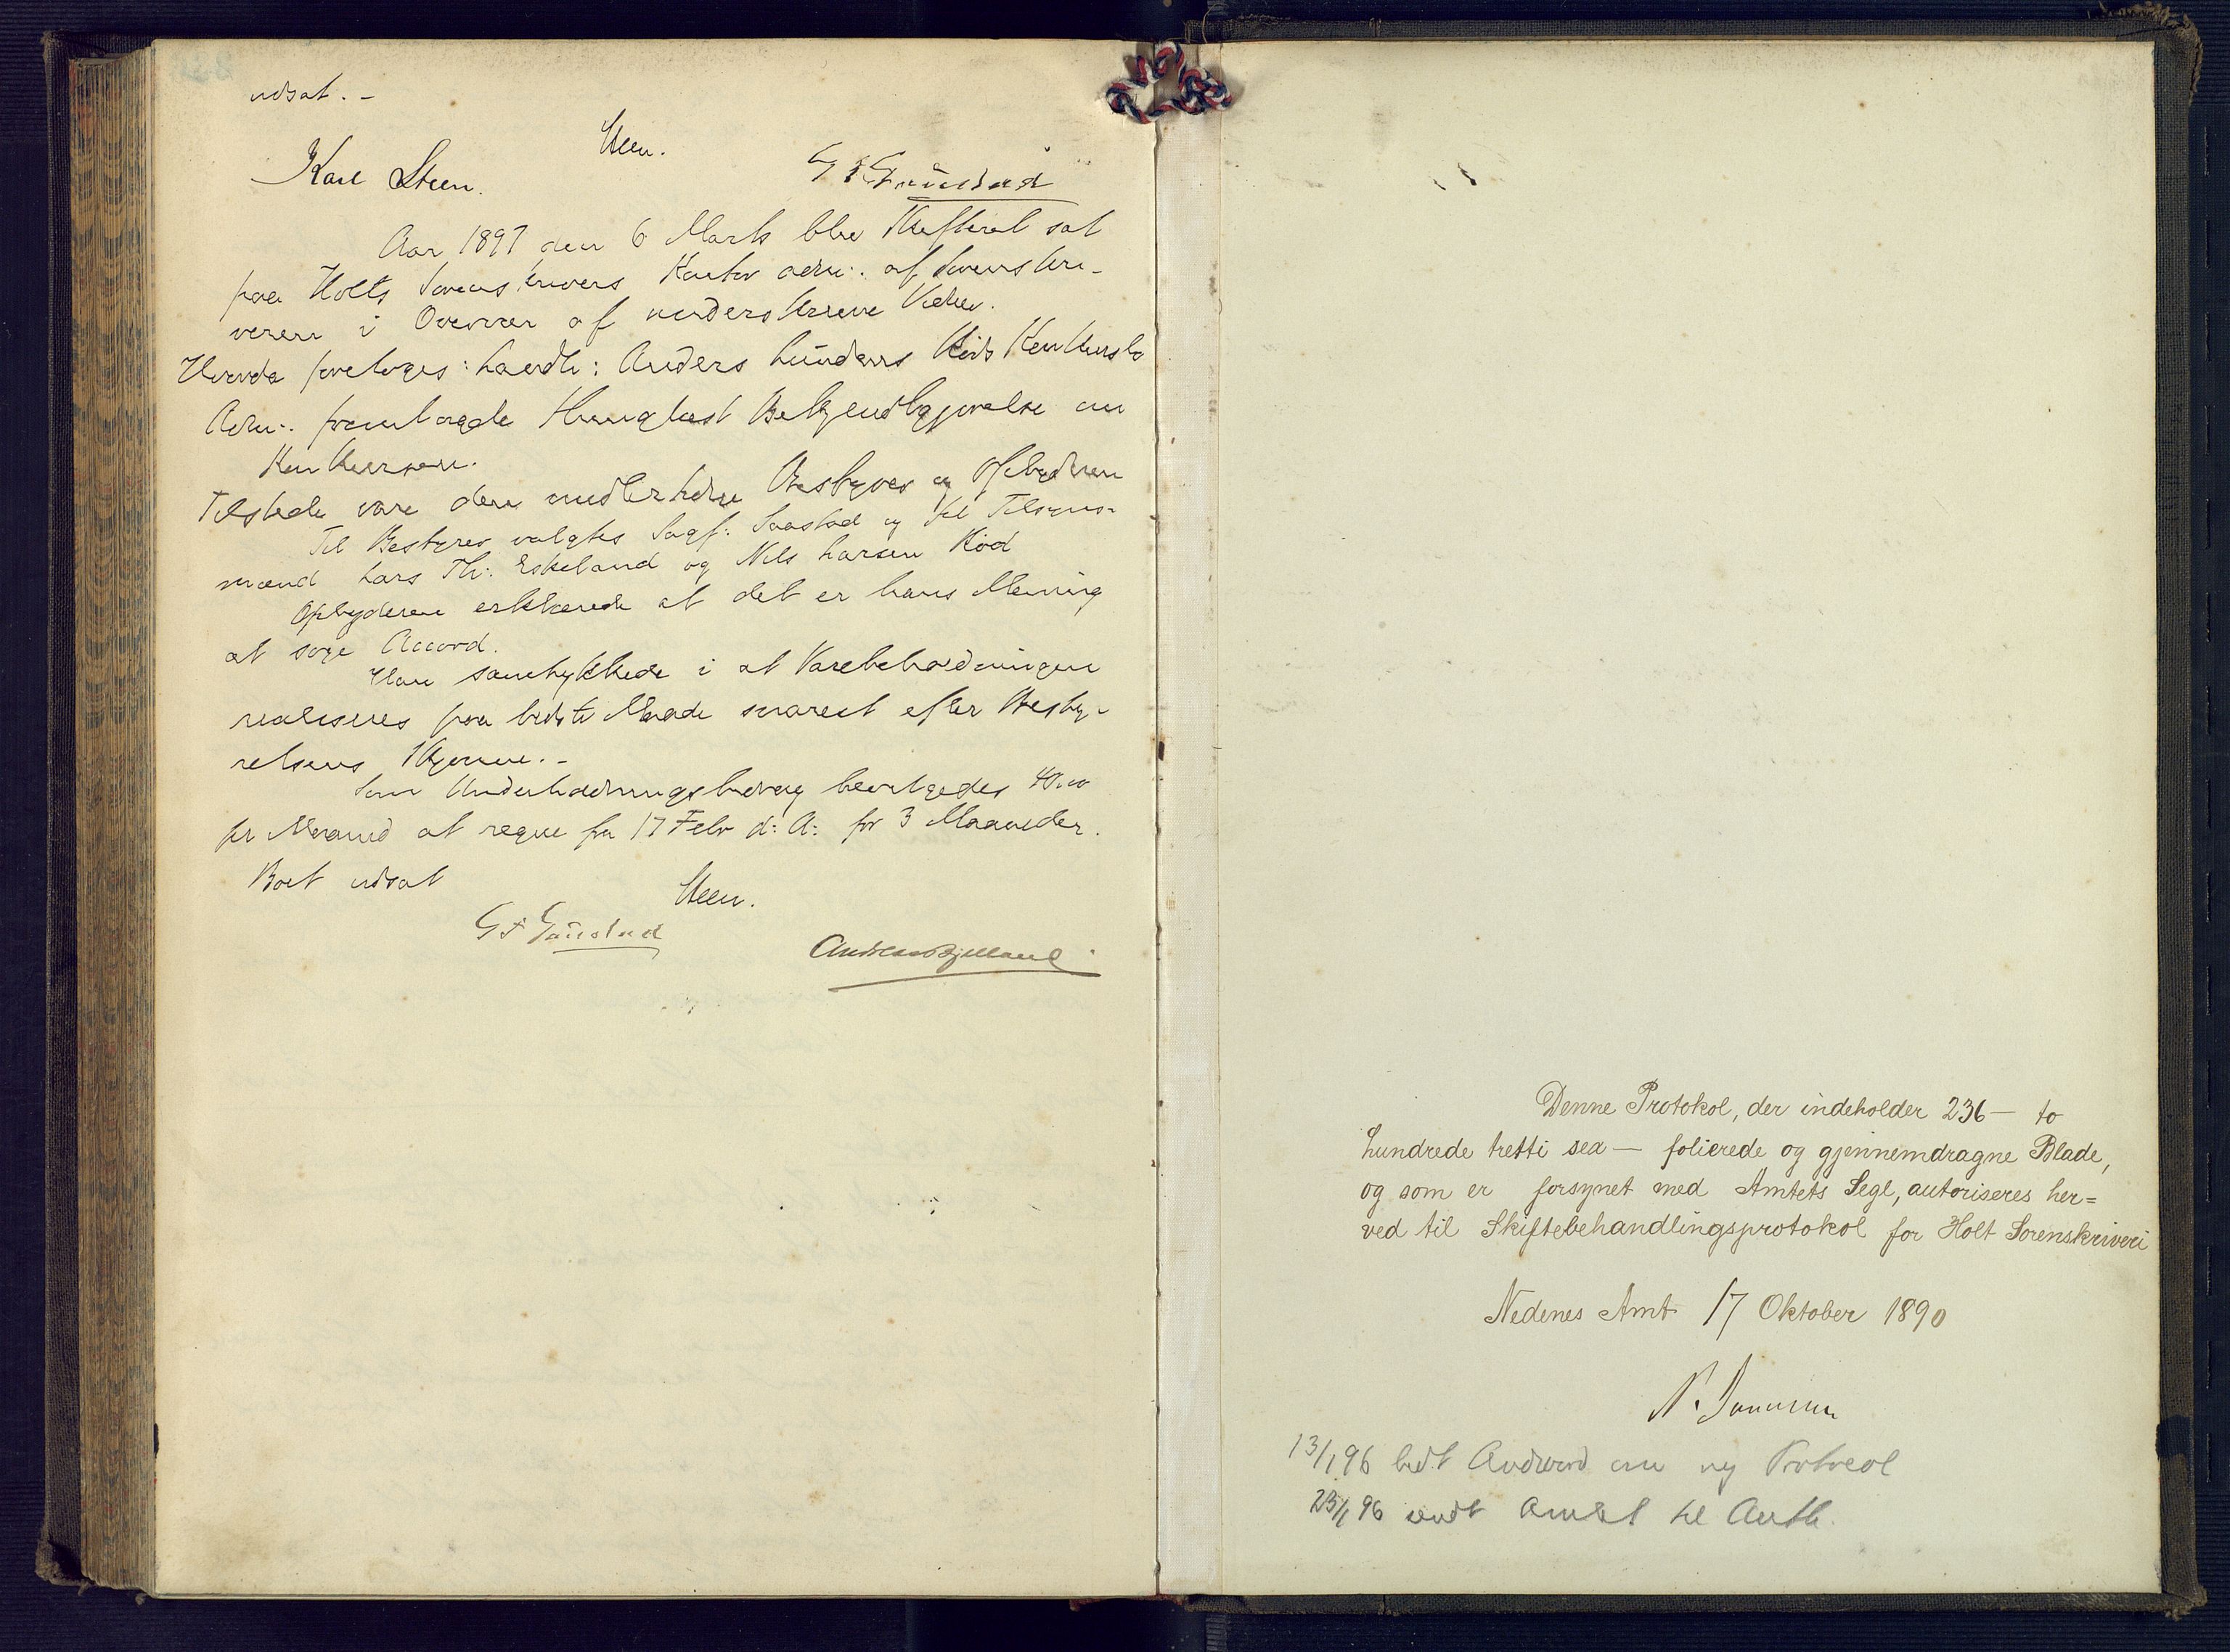 udsat. -
Steen.
Karl Steen.
Aar 1897 den 6 Marts blev Skifteret sat
paa Holts Sorenskrivers Kontor adm:. af Sorenskri-
veren i Overvær af underskrevne Vidner.
Hvorda foretoges: handl: Anders
Adm:. fremlagde thinglæst Bekjendtgjørelse om
Konkursen.
Tilstede vare den midlertidige Bestyrer og Opbyderen
Til Bestyrer valgtes Sagf: og til Tilsyns-
mænd Lars Th: Eskeland og Nils Larsen
Opbyderen erklærede at det er hans Mening
at søge Accord.
Han samtykkede i at Varebeholdningen
realiseres paa bedste Maade snarest efter Besty-
relsens Skjønne. -
Som Underholdningsbidrag bevilgedes 40.00
pr Maaned at regne fra 17 Febr d: A: for 3 Maaneder.
Boet udsat
Steen.
Andreas Bjelland
Denne Protokol, der indeholder 236 — to
hundrede tretti sex — folierede og gjennemdragne Blade,
og som er forsynet med Amtets Segl, autoriseres her=
ved til Skiftebehandlingsprotokol for Holt Sorenskriveri
Nedenes Amt 17 Oktober 1890
13/1 96 bedt om ny Protocol
23/1 96 sendt Amtet til Auth.